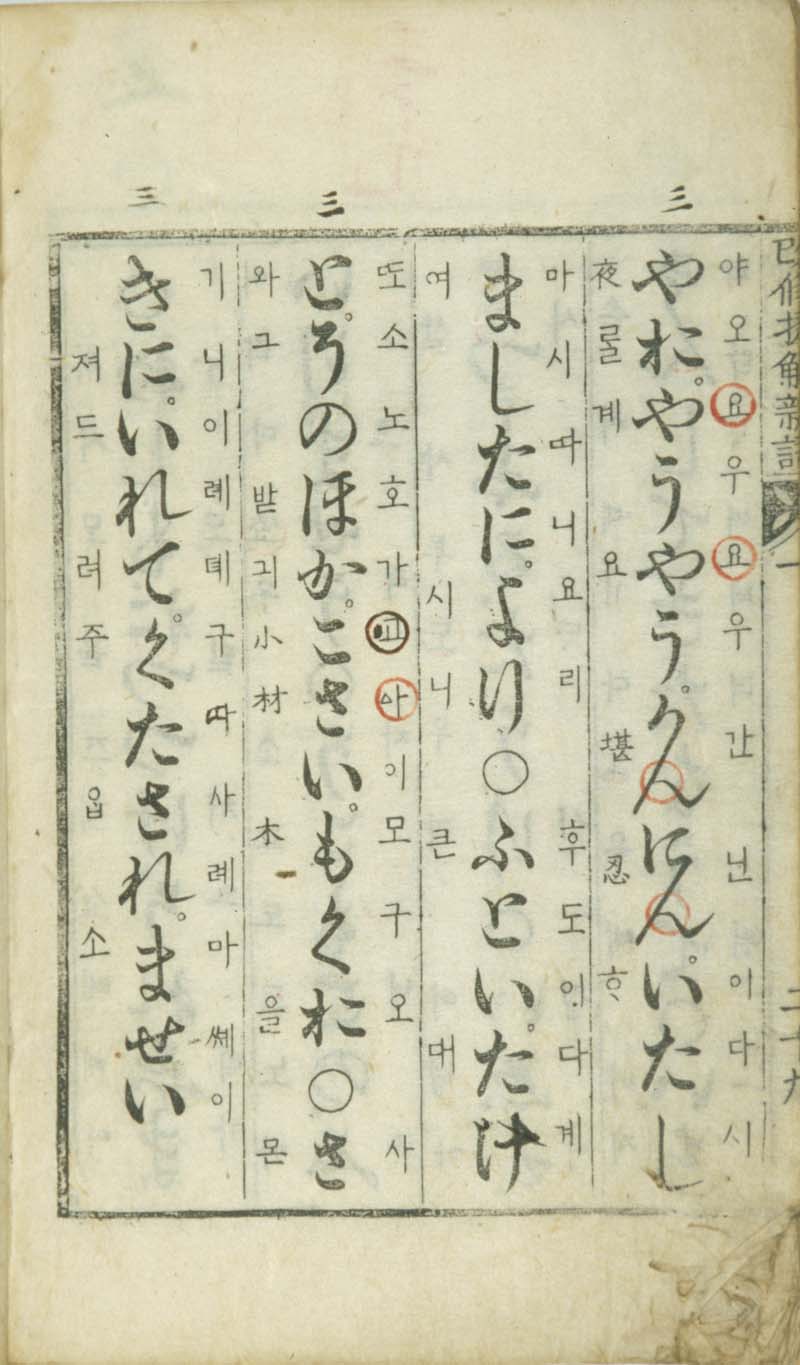 三
三
三
改修捷解新語 一 二十九
야오요우요우간닌이다시
やおやうやうかんにんいたし
夜룰계요堪忍ᄒᆞ
마시따니요리후도이다계
ましたにより○ふといたけ
여시니큰대
또소노호가고사이모구오사
とそのほかこさいもくお○さ
와그받긔小材木을노몬
기니이례뎨구따사례마쎼이
きにいれてくたされませい
져드려주옵소